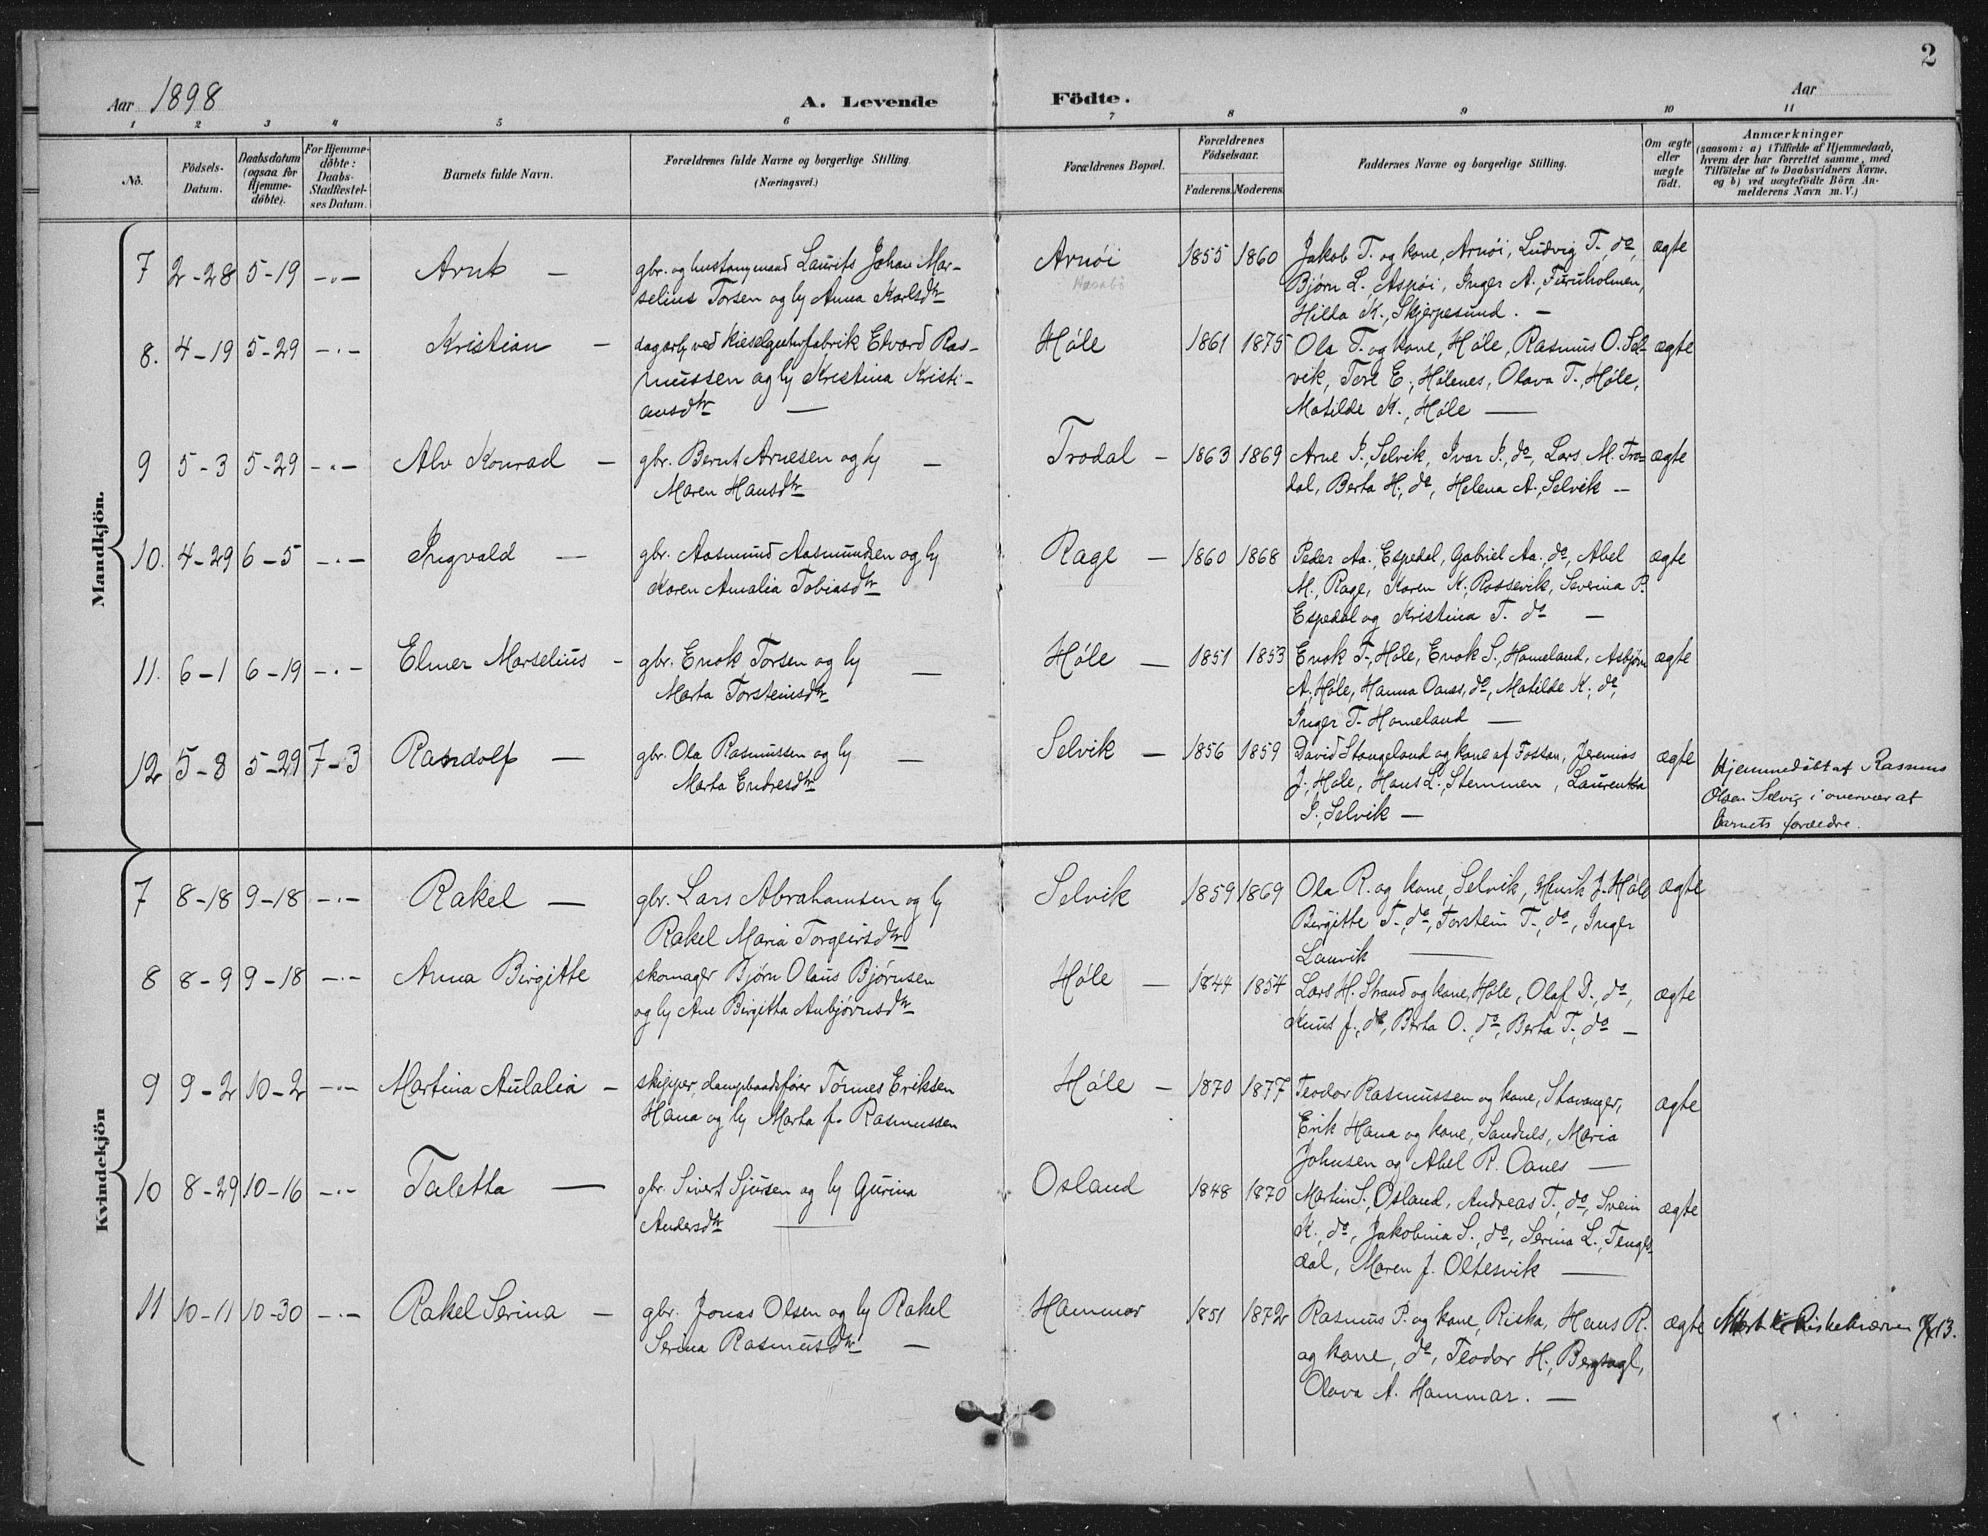 2
Aar 1898
A. Levende Födte.
Aar
1 2 3 4 5 6 7 8 9 10 11
No.
Födsels-Datum.
Daabsdatum (ogsaa for Hjemme-döbte).
For Hjemme-döbte: Daabs-Stadfæstel-ses Datum.
Barnets fulde Navn.
Forældrenes fulde Navne og borgerlige Stilling.
(Næringsvei.)
Forældrenes Bopæl.
Forældrenes Födselsaar.
Faderens. Moderens.
Faddernes Navne og borgerlige Stilling.
Om ægte eller uægte födt.
Anmærkninger
(saasom: a) i Tilfælde af Hjemmedaab,
hvem der har forrettet samme, med
Tilföielse af to Daabsvidners Navne,
og b) ved uægtefödte Börn An-
melderens Navn m. V.)
Mandkjön.
7 2-28 5-19 -"- Arnt — gbr. og hustomtmand Laurits Johan Mar- Arnöi 1855 1860 Jakob T. og kone, Arnöi, Ludvig T., do, ægte
selius Torsen og h Anna Karlsdtr Bjørn L., Aspöi, Inger A., Furuholmen,
Hilda K., Skjerpesund. —
8. 4-19 5-29 -"- Kristian — dagarb ved Kieselguhrfabrik Edvard Ras- Höle 1861 1875 Ola T. og kone, Höle, Rasmus O. Sel- ægte
mussen og h Kristina Kristi- vik, Tore E., Hölenes, Olava T., Höle,
ansdtr — Matilde K., Höle —
9 5-3 5-29 -"- Alv Konrad — gbr. Bernt Arnesen og h — Trodal — 1863 1869 Arne P., Selvik, Ivar P., do, Lars M. Tro- ægte
Maren Hansdtr dal, Berta H., do, Helena A., Selvik —
10. 4-29 6-5 -"- Ingvald — gbr. Aasmund Aasmundsen og h Rage — 1860 1868 Peder Aa., Espedal, Gabriel Aa., do, Abel ægte
Karen Amalia Tobiasdtr M., Rage, Karen K., Rossevik, Severina P.
Espedal og Kristina T. do —
11. 6-1 6-19 -"- Elmer Marselius — gbr. Enok Torsen og h Höle — 1851 1853 Enok T., Höle, Enok S., Hameland, Asbjørn ægte
Marta Torsteinsdtr — A., Höle, Hanna Oanes, do, Matilde K., do,
Inger T. Hameland —
12 5-8 5-29 7-3 Randolf — gbr. Ola Rasmussen og h — Selvik — 1856 1859 David Stangeland og kone af Fossan, Jeremias ægte Hjemmedöbt af Rasmus
Marta Endresdtr J., Höle, Hans L., Stemmen, Laurentsa Olsen Selvig i overvær af
I., Selvik — barnets forældre.
Kvindekjön
7 8-18 9-18 -"- Rakel — gbr. Lars Abrahamsen og h Selvik 1859 1869 Ola R. og kone, Selvik, Henrik J. Höle ægte
Rakel Maria Torgeirsdtr Birgitte T., do, Torstein T., do, Inger
Lauvik —
8 8-9 9-18 -"- Anna Birgitte skomager Bjørn Olaus Bjørnsen Höle — 1844 1854 Lars H. Strand og kone, Höle, Olaf D., do, ægte
og h Ane Birgitta Anbjørnsdtr Knut J., do, Berta O., do, Berta T., do —
9 9-2 10-2 -"- Martina Aulalia — skipper, dampbaadsfører Tönnes Eriksen Höle — 1870 1877 Teodor Rasmussen og kone, Stavanger, ægte
Hana og h Marta f. Rasmussen Erik Hana og kone, Sandnes, Maria
Johnsen og Abel R. Oanes —
10 8-29 10-16 -"- Taletta — gbr. Sivert Sjursen og h Gurina Osland 1848 1870 Martin S., Osland, Andreas T., do, Svein ægte
Andersdtr — K., do, Jakobina S., do, Serina L., Tenges-
dal, Maren J. Oltesvik —
11 10-11 10-30 -"- Rakel Serina — gbr. Jonas Olsen og h Rakel Hammar 1851 1872 Rasmus P. og kone, Riska, Hans R. ægte
Serina Rasmusdtr — og kone, do, Teodor H., Bergsagl,
Olava A. Hammar. —